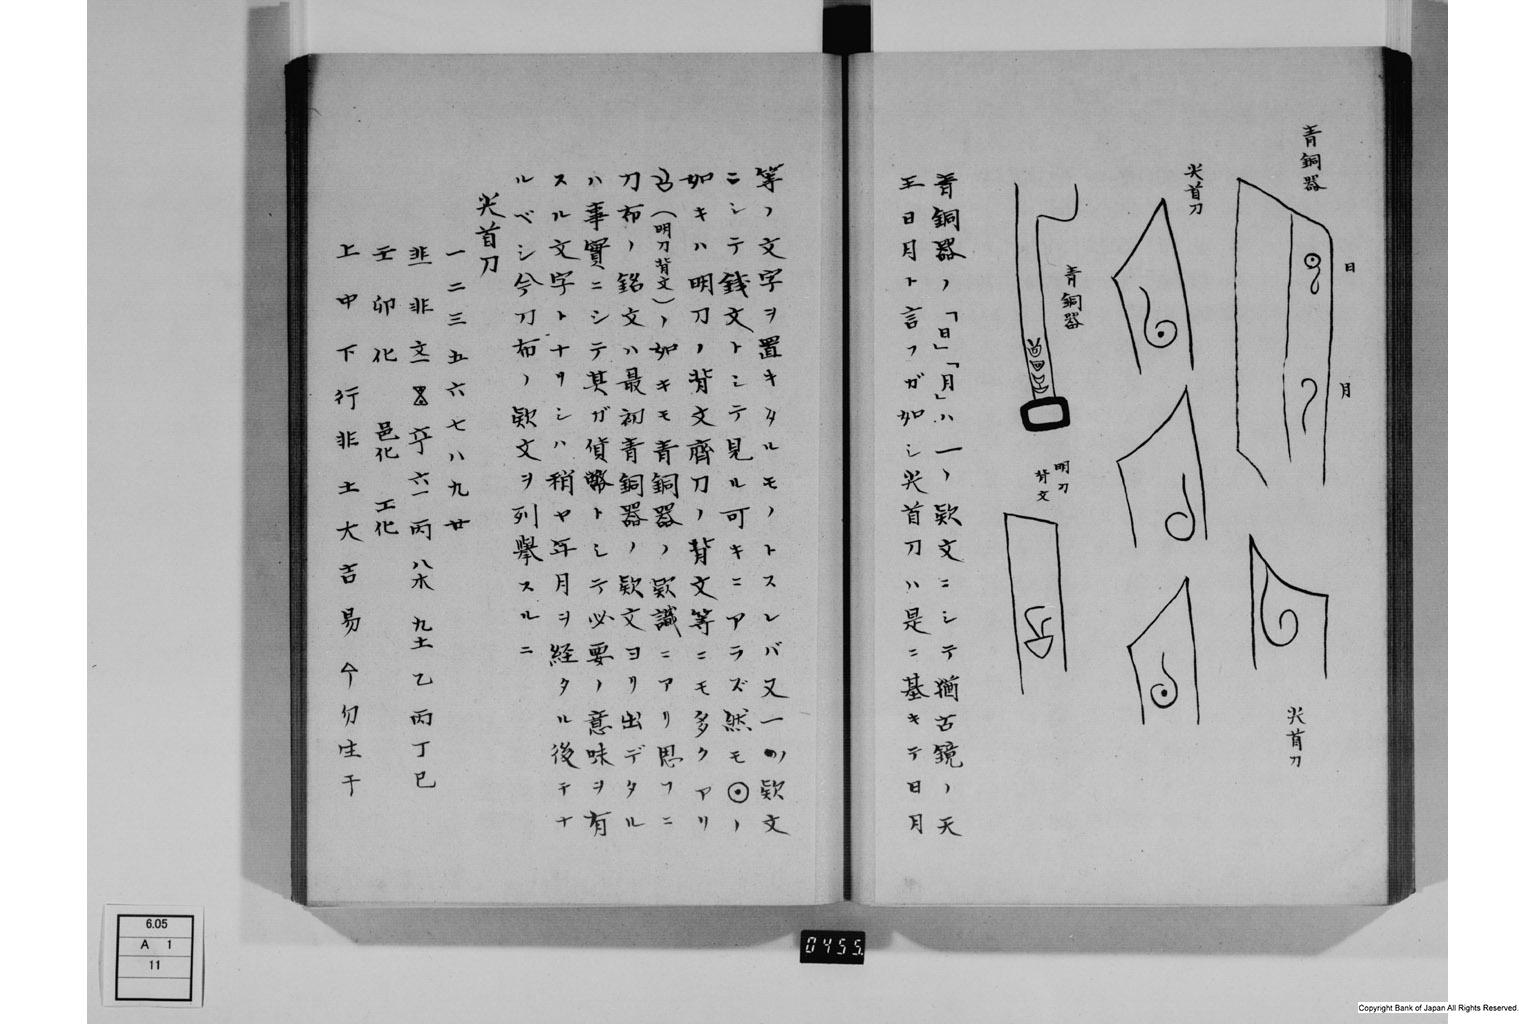 青銅器
日
月
尖首刀
青銅器
明刀
背文
尖首刀
青銅器ノ「日」「月」ハ一ノ欵文ニシテ猶古鏡ノ天
王日月ト言フガ如シ尖首刀ハ是ニ基キテ日月
等ノ文字ヲ置キタルモノトスレバ又一の欵文
ニシテ銭文トシテ見ル可キニアラズ然モ⊙ノ
如キハ明刀ノ背文齊刀ノ背文等ニモ多クアリ
(明刀背文)ノ如キモ青銅器ノ欵識ニアリ思フニ
刀布ノ銘文ハ最初青銅器ノ欵文ヨリ出デタル
ハ事實ニシテ其ガ貨幣トシテ必要ノ意味ヲ有
スル文字トナリシハ稍ヤ年月ヲ経タル後テナ
ルベシ今刀布ノ欵文ヲ列擧スルニ
尖首刀
一二三五六七八九廿
非 文一 六一 丙 八水 九土 乙丙丁巳
壬 卯 化 邑化 工化
上中下行非土大吉易今勿生干
6.05
A 1
11
0455
Copyright Bank of Japan All Rights Reserved.